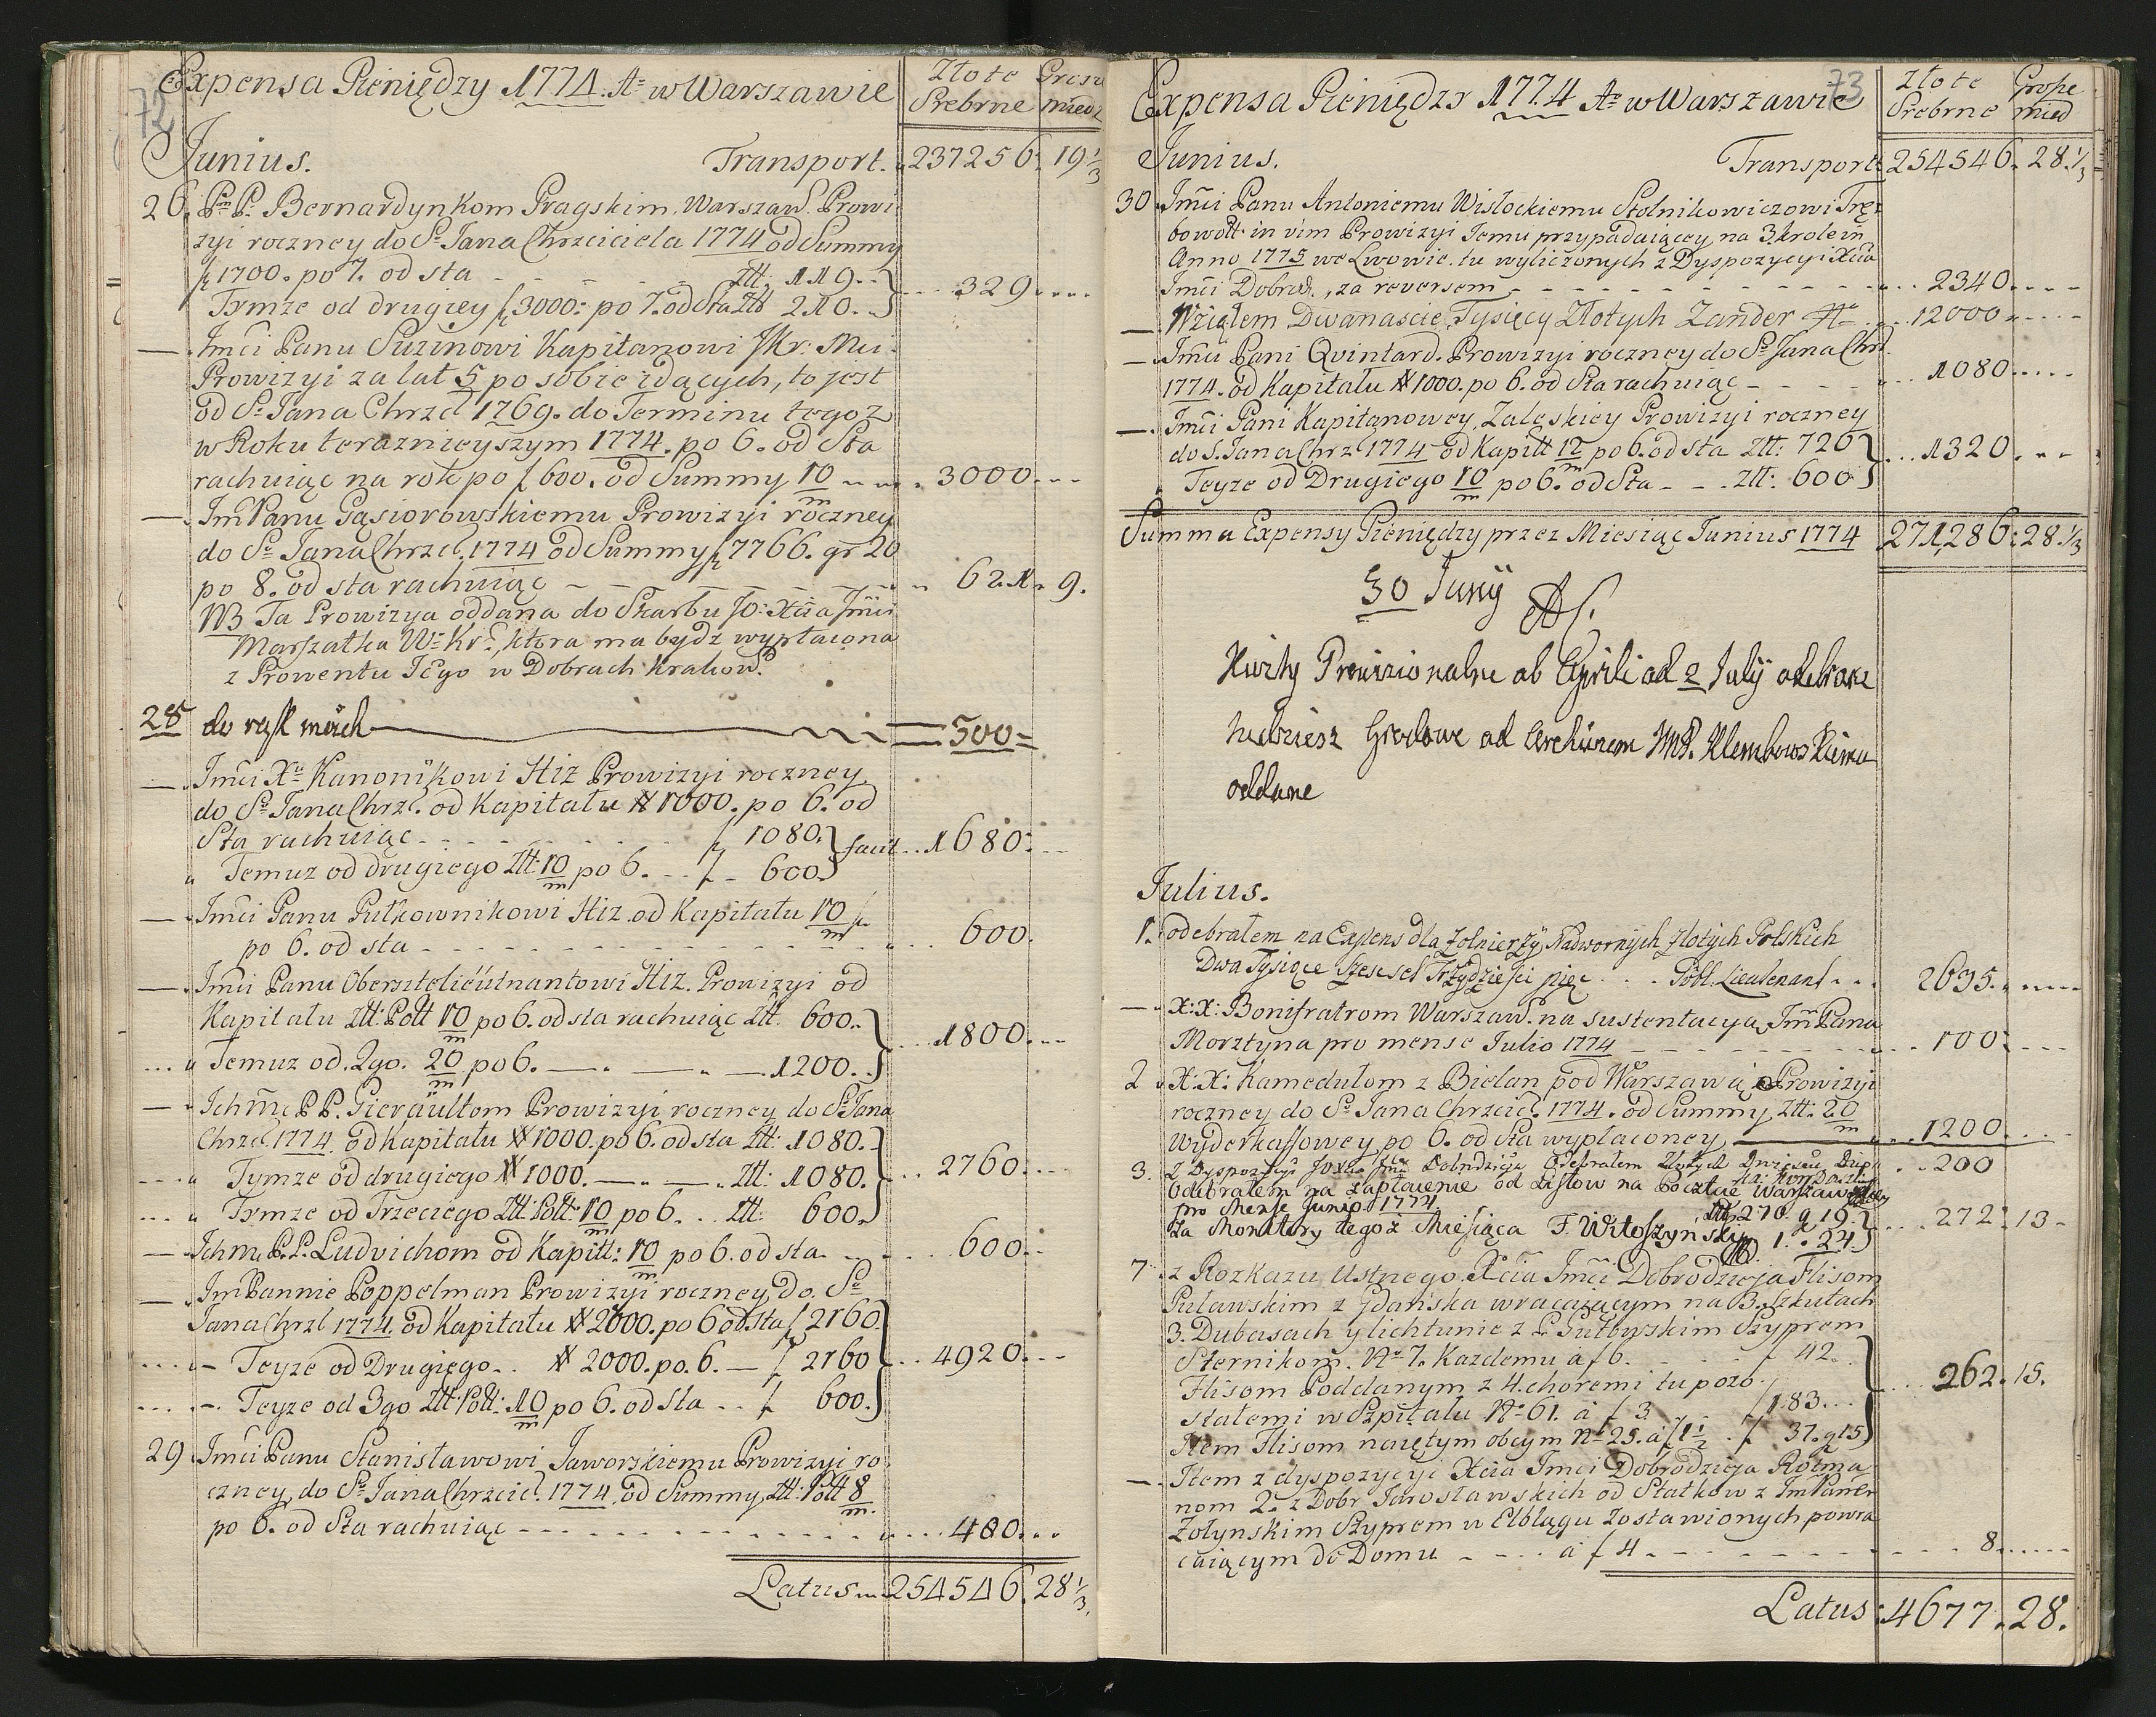 72
Expensa Pieniędzy 1774. Ao w Warszawie
Złote Grosz
Srebrne miedz
Junius. Transport. 237256. 19 1/3
26. PP. Bernardynkom Pragskim. Warszaw. Prowi
zyi roczney do So Jana Chrzciciela 1774 od Summy
f 1700. po 7. od sta - - - Złł. 119.
Tymze od drugiey f 3000. po 7. od Sta Złł 210. 329
— Jmći Panu Suzinowi Kapitanowi JKr: Mci
Prowizyi za lat 5 po sobie idących, to jest
od So Jana Chrzcl 1769. do Terminu tegoz
w Roku teraznieyszym 1774. po 6. od Sta
rachuiąc na rok po f 600. od Summy 10/m 3000
— Jm Panu Gąsiorowskiemu Prowizyi roczney
do So Jana Chrzcl. 1774 od Summy f 7766. gr 20
po 8. od sta rachuiąc - - - 621. 9.
NB Ta Prowizya oddana do Skarbu JO: Xcia Jmći
Marszałka W: Kr:, która ma bydz wypłacona
z Prowentu JEgo w Dobrach Krakow.
28 do — 500
— Jmći Xu Kanonikowi Hiz Prowizyi roczney
do So Jana Chrzl. od Kapitału # 1000. po 6. od
Sta rachuiąc - - - f 1080. facit 1680.
" Temuz od drugiego Złł 10/m po 6. - - f - 600
— Jmći Panu Pułkownikowi Hiz od Kapitału 10/m f
po 6. od sta - - - 600.
— Jmći Panu Obersztelieütnantowi Hiz. Prowizyi od
Kapitału Złł: Poll 10/m po 6. od sta rachuiąc Złł. 600. 1800.
" Temuz od. 2go. 20/m po 6. — . — . — 1200.
— Ichmć PP. Gieraültom Prowizyi roczney do So Jana
Chrzcl 1774. od Kapitału # 1000. po 6. od sta Złł: 1080.
" Tymze od drugiego # 1000. — — Złł: 1080. 2760.
" Tymze od Trzeciego Złł: Poll: 10/m po 6. . . Złł: 600.
— Ichm. P.P. Ludvichom od Kapitł: 10/m po 6. od sta. 600.
— Jm Pannie Poppelman Prowizyi roczney, do. So
Jana Chrzl 1774. od Kapitału # 2000. po 6 od sta f 2160.
— Teyze od Drugiego . . # 2000. po. 6. — f 2160 4920.
— Teyze od 3go Złł: Poll: 10/m po 6. od Sta . . f 600.
29 Jmći Panu Stanisławowi Jaworskiemu Prowizyi ro
czney, do So Jana Chrzciel. 1774. od Summy Złł: Poll 8/m.
po 6. od Sta rachuiąc - - - 480.
Latus 254546. 28 1/3.
73
Expensa Pieniędzy 1774 Ao w Warszawie
Złote Grosze
Srebrne mied
Junius. Transport 254546. 28. 1/3
30 Jmći Panu Antoniemu Wisłockiemu Stolnikowiczowi Trę
bowoll. in vim Prowizyi Jemu przypadaiącey, na 3. Krolem
Anno 1775 we Lwowie. tu wyliczonych z Dyspozycyi Xcia
Jmći Dobrod., za reversem - - - 2340.
— Wziąłem Dwanascie Tysięcy Złotych Zander 12000
— Jmći Pani Qvintard. Prowizyi roczney do So Jana Chrl.
1774. od Kapitału # 1000. po 6. od Sta rachuiąc - - - 1080
— Jmći Pani Kapitanowey, Zaleskiey Prowizyi roczney
do S. Jana Chrzl 1774 od Kapitł 12/m po 6. od sta Złł: 720 1320.
Teyze od Drugiego 10/m po 6. od Sta - - Złł: 600
Summa Expensy Pieniędzy przez Miesiąc Junius 1774 271,286: 28. 1/3
30 Junij
Kwity Prowizionalne ab Aprili ad 2 Julij odebrane
Grodowe ad Archivum Klembowskiemu
oddane
Julius.
1. odebrałem na Expens dla Zolnierzy Nadwornych złotych Polskich
Dwa Tysiące Szescset Trzydziesci pięc . . . Lieutenant 2635.
— X: X: Bonifratrom Warszaw. na sustentacyą Jm Pana
Morztyna pro mense Julio 1774 - - - 100.
2 X: X: Kamedułom z Bielan pod Warszawą Prowizyi
roczney do So Jana Chrzciel. 1774. od Summy Złł: 20/m
wyderkaffowey, po 6. od Sta wypłaconey — 1200.
3. z Dyspozycyi Odebrałem Złotych 200
Odebrałem na zapłacenie od Listow na Pocztue Warszawskiey
pro Mense Junio 1774. 270. g 19. 272. 13
Za Monitory tegoz Miesiąca F. Witoszynski 1. 24.
7 z Rozkazu Ustnego Xcia Jmći Dobrodzieja Flisom
Puławskim z Gdańska wracaiącym na 3. Szkutach
3. Dubasach y lichtunie z P. Gutbyskim Szyprem
Sternikom. No 7. Kazdemu à f 6. - - - f 42.
Flisom Poddanym z 4. choremi tu pozo
stałemi w Szpitalu No 61. à f 3. f 183. 262. 15.
Item Flisom naiętym obcym No 25. à f 1 1/2 . f 37. g 15
— Item z dyspozycyi Xcia Jmći Dobrodzieja Rotma
nom 2. z Dobr Jarosławskich od Statkow z Jm Panem
Zołynskim Szyprem w Elblągu zostawionych powra
caiącym do Domu - - - à f 4 - - - 8.
Latus. 4677. 28.